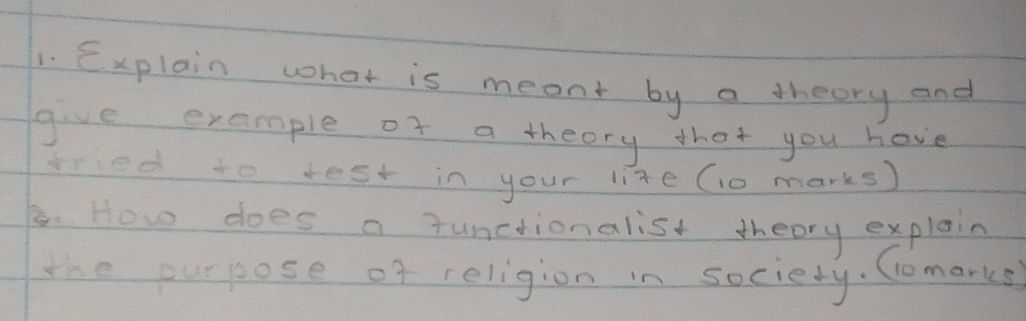 1. Explain what is meant by a theory and
give example of a theory that you have
tried to test in your life (10 marks)
2. How does a functionalist theory explain
the purpose of religion in society. (10 marks)